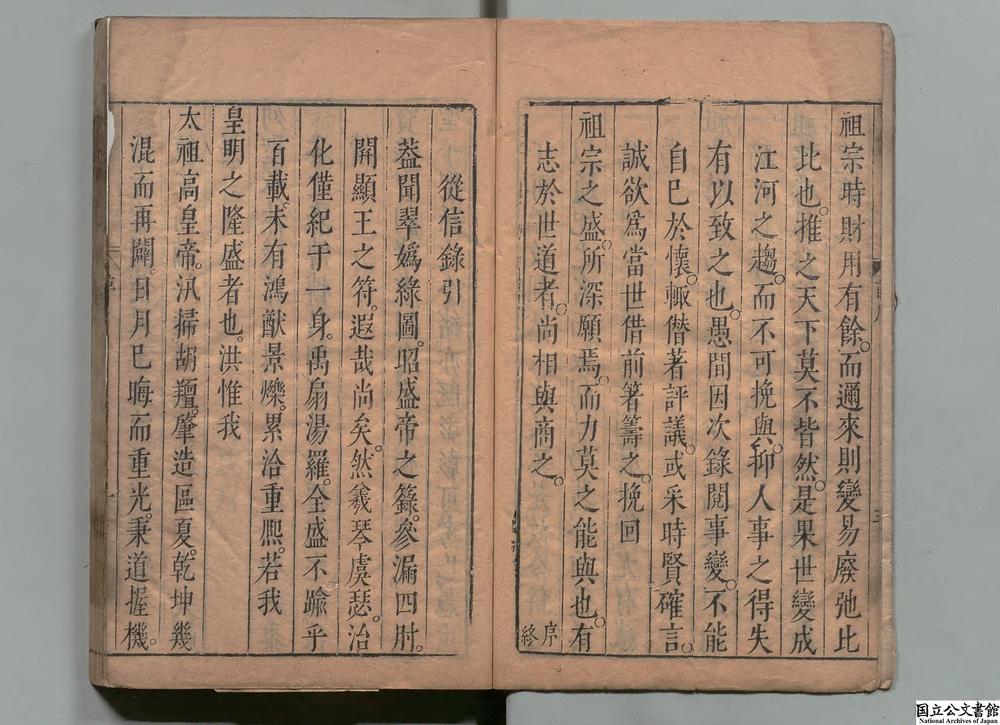 祖宗時財用有餘。而邇來則變易廢弛比
比也。推之天下莫不皆然。是果世變成
江河之趨。而不可挽與。抑人事之得失
有以致之也。愚間因次錄閱事變。不能
自已於懷。輙僭著評議。或采時賢確言。
誠欲爲當世借前箸籌之。挽回
祖宗之盛。所深願焉。而力莫之能與也。有
志於世道者。尚相與商之。
序終
從信錄引
葢聞翠嬀綠圖。昭盛帝之籙。參漏四肘。
開顯王之符。遐哉尚矣。然羲琴虞瑟。治
化僅紀于一身。禹扇湯羅。全盛不踰乎
百載。未有鴻猷景爍。累洽重熙。若我
皇明之隆盛者也。洪惟我
太祖高皇帝。汛掃胡羶。肇造區夏。乾坤幾
混而再闢。日月已晦而重光。秉道握機。
国立公文書館
National Archives of Japan